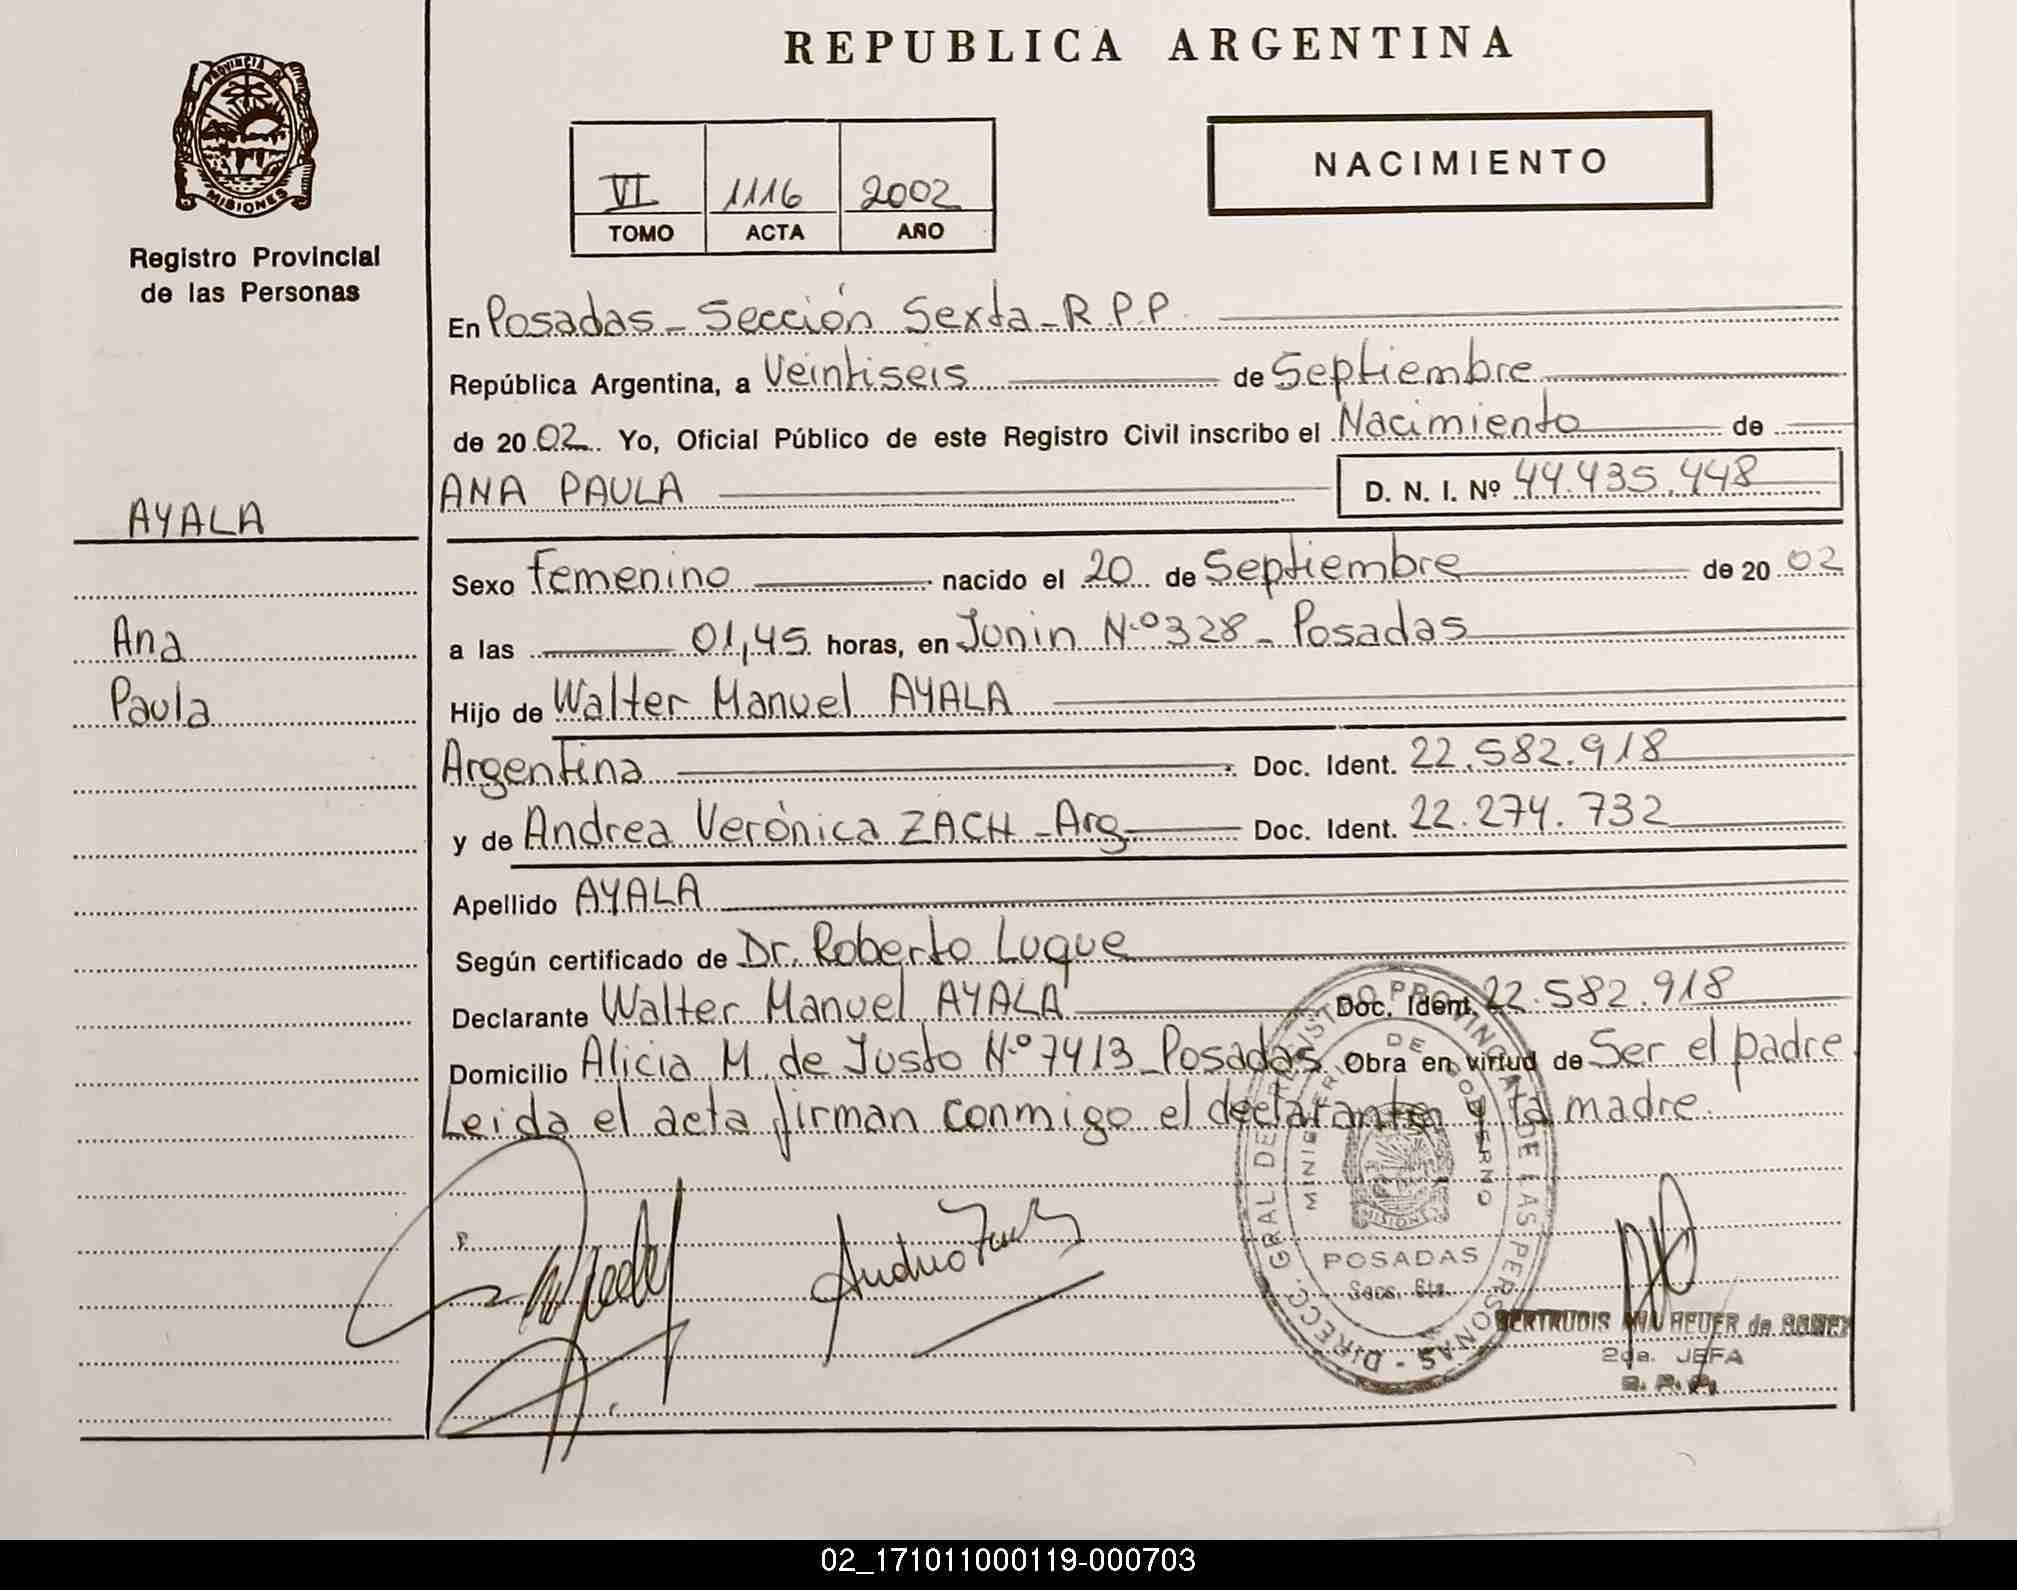 REPUBLICA ARGENTINA
PROVINCIA DE MISIONES
Registro Provincial
de las Personas
NACIMIENTO
VI 1116 2002
TOMO ACTA AÑO
En Posadas - Sección Sexta - R.P.P.
República Argentina, a Veintiseis de Septiembre
de 2002. Yo, Oficial Público de este Registro Civil inscribo el Nacimiento de
ANA PAULA D. N. I. Nº 44.435.448
AYALA
Ana
Paula
Sexo femenino nacido el 20 de Septiembre de 2002
a las 01,45 horas, en Junin N.º 328 - Posadas
Hijo de Walter Manuel AYALA
Argentina Doc. Ident. 22.582.918
y de Andrea Verónica ZACH - Arg. Doc. Ident. 22.274.732
Apellido AYALA
Según certificado de Dr. Roberto Luque
Declarante Walter Manuel AYALA Doc. Ident. 22.582.918
Domicilio Alicia M. de Justo N.º 7413 - Posadas. Obra en virtud de Ser el padre.
Leida el acta firman conmigo el declarante y la madre.
DIRECC. GRAL. DE REGISTRO PROVINCIAL DE LAS PERSONAS -
MINISTERIO DE GOBIERNO
MISIONES
POSADAS
Secc. 6ta.
GERTRUDIS
2da. JEFA
R. P. P.
02_171011000119-000703